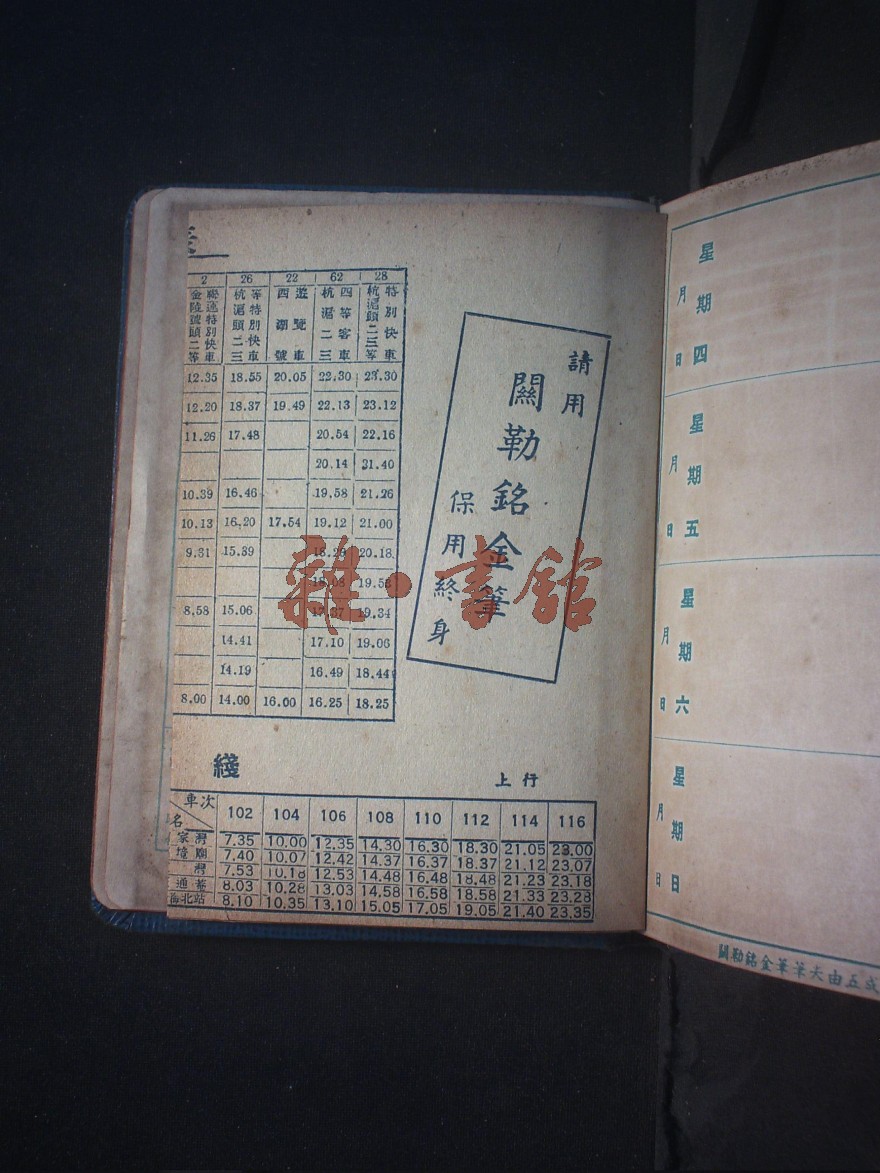 2 26 22 62 28
聯運特別快車 金陵號頭二等
等特別快車 杭滬頭二三
遊覽車 西湖號
四等客車 杭滬二三
特別快車 杭滬頭二三等
12.35 18.55 20.05 22.30 23.30
12.20 18.37 19.49 22.13 23.12
11.26 17.48 20.54 22.16
20.14 21.40
10.39 16.46 19.58 21.26
10.13 16.20 17.54 19.12 21.00
9.31 15.39 20.18
8.58 15.06 19.34
14.41 17.10 19.06
14.19 16.49 18.44
8.00 14.00 16.00 16.25 18.25
請用
關勒銘金筆
保用終身
雜·書館
綫
上行
車次 102 104 106 108 110 112 114 116
名
家灣 7.35 10.00 12.35 14.30 16.30 18.30 21.05 23.00
墻廟 7.40 10.07 12.42 14.37 16.37 18.37 21.12 23.07
灣 7.53 10.18 12.53 14.48 16.48 18.48 21.23 23.18
通菴 8.03 10.28 13.03 14.58 16.58 18.58 21.33 23.28
海北站 8.10 10.35 13.10 15.05 17.05 19.05 21.40 23.35
星期四
月 日
星期五
月 日
星期六
月 日
星期日
月 日
關勒銘金筆筆尖由五或